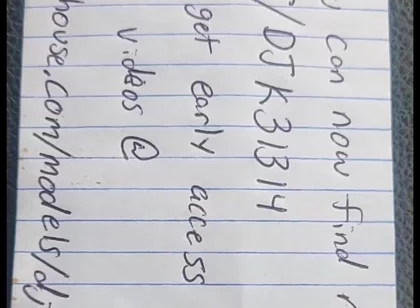 can now find
/DJK31314
get early access
videos @
house.com/models/dj